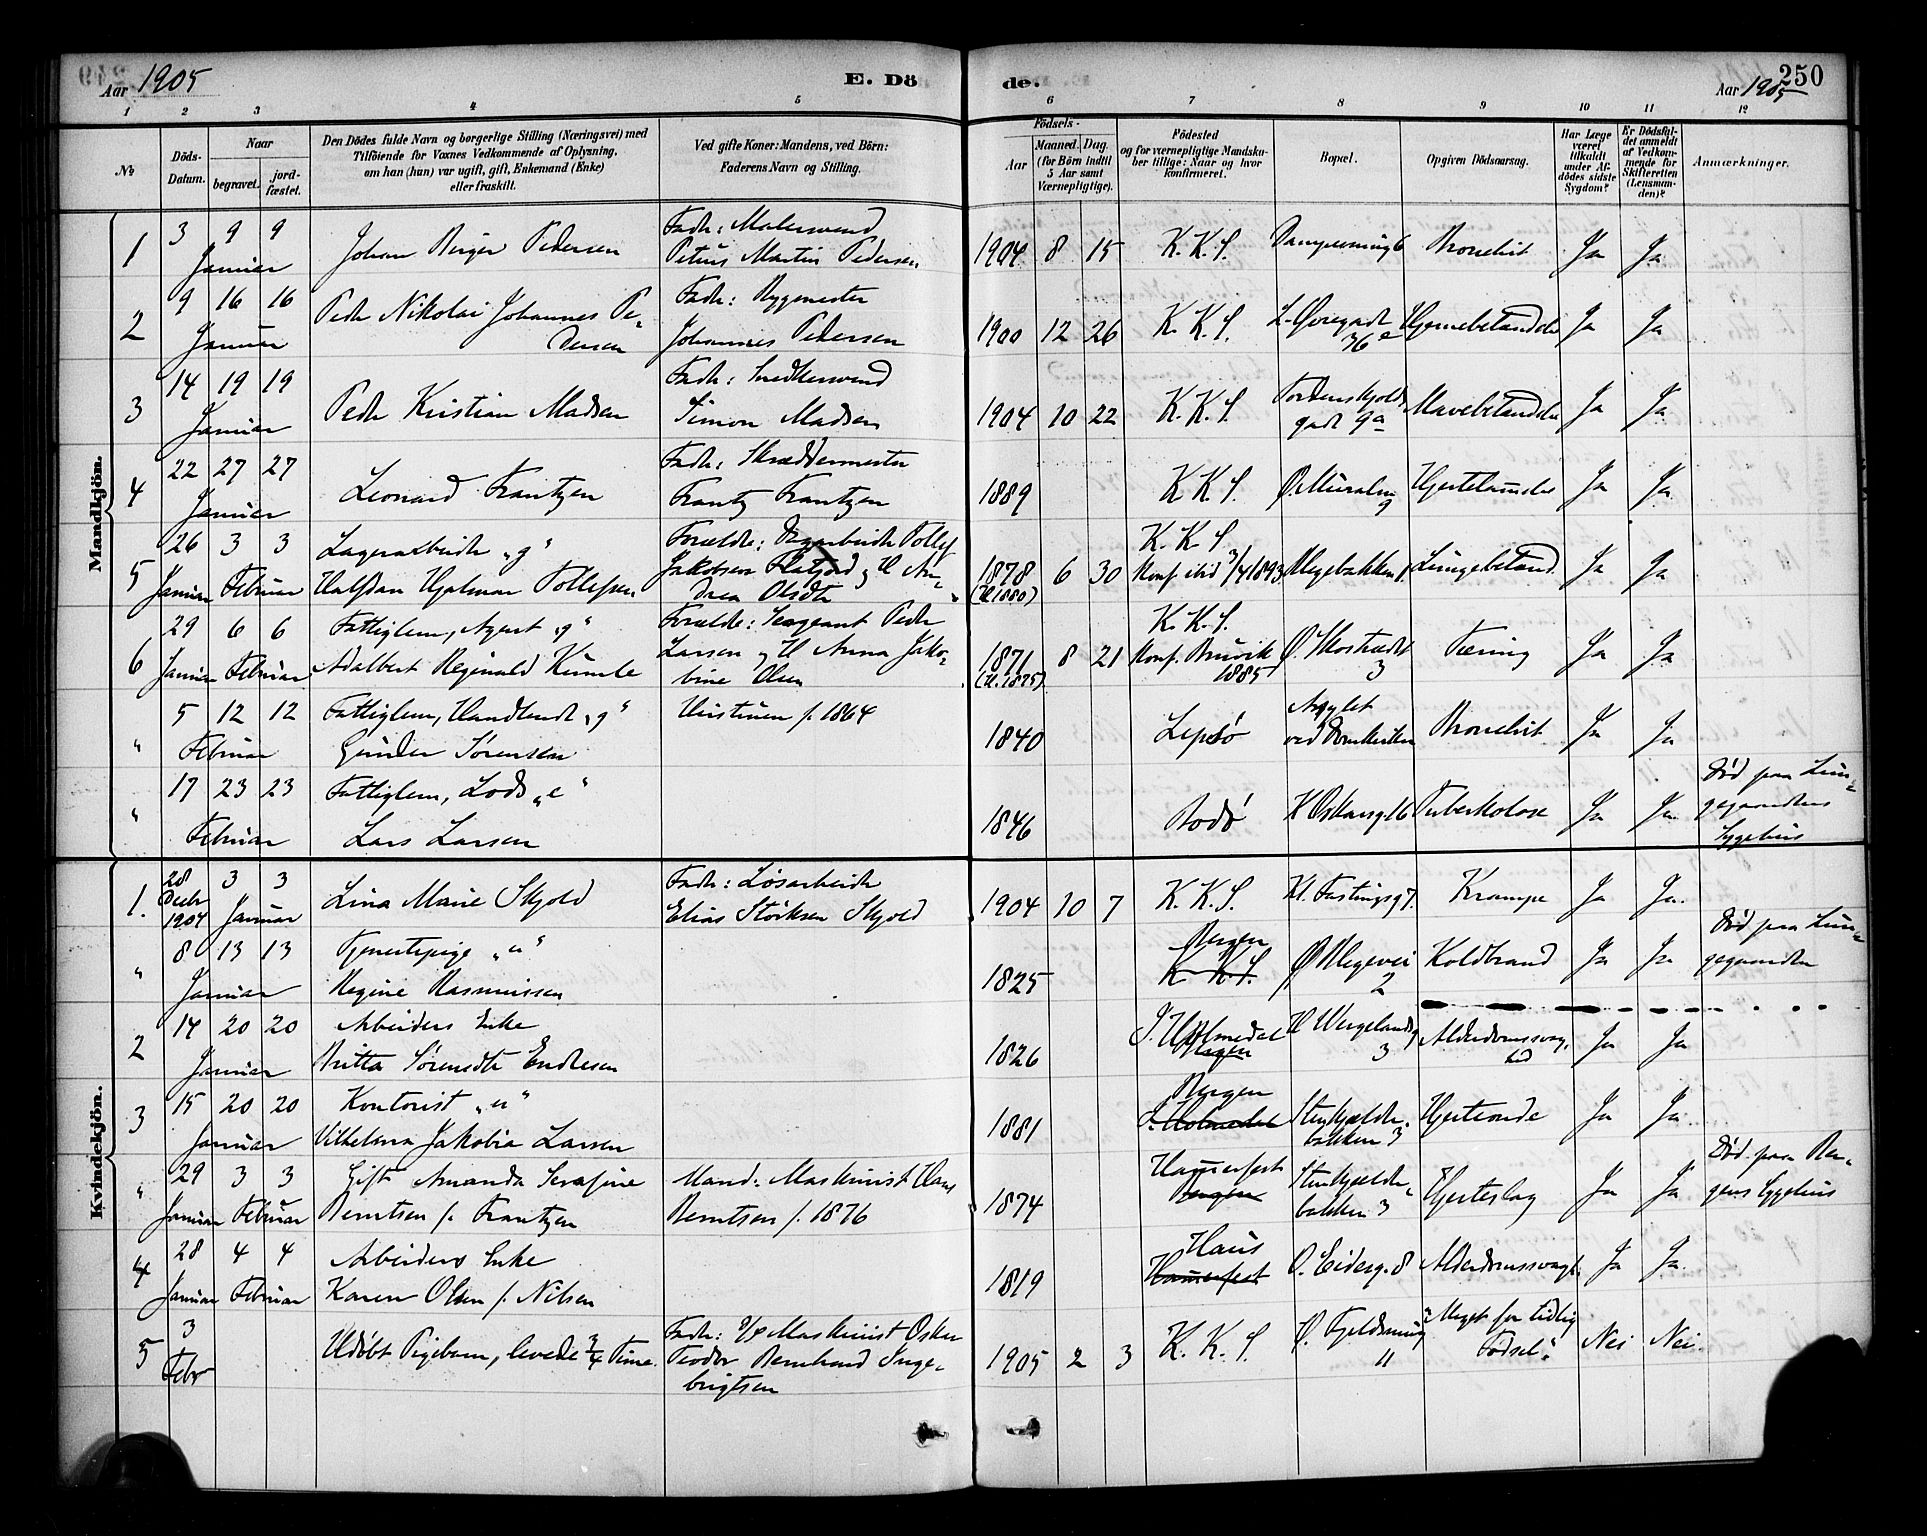 Aar 1905
E. Döde.
250
Aar 1905
1 2 3 4 5 6 7 8 9 10 11 12
No
Döds-Datum.
Naar
begravet.
jordfæstet.
Den Dödes fulde Navn og borgerlige Stilling (Næringsvei) med
Tilföiende for Voxnes Vedkommende af Oplysning,
om han (hun) var ugift, gift, Enkemand (Enke)
eller fraskilt.
Ved gifte Koner: Mandens, ved Börn:
Faderens Navn og Stilling.
Födsels-
Aar
Maaned. Dag.
(for Börn indtil
5 Aar samt
Værnepligtige).
Födested
og for værnepligtige Mandskaber tillige: Naar og hvor
konfirmeret.
Bopæl.
Opgiven Dödsaarsag.
Har Læge
været
tilkaldt
under Afdödes sidste
Sygdom?
Er Dödsfaldet anmeldt
af Vedkommende for
Skifteretten
(Lensmanden)?
Anmærkninger.
Mandkjön.
1 3 9 9 Januar Johan Birger Pedersen Fader: Malersvend Petrus Martin Pedersen 1904 8 15 K. K. S. Bronchit Ja Ja
2 9 16 16 Januar Peder Nikolai Johannes Pedersen Fader: Bygmester Johannes Pedersen 1900 12 26 K. K. S. L. Øvregade 36e Hjernebetændelse Ja Ja
3 14 19 19 Januar Peder Kristian Madsen Fader: Snedkersvend Simon Madsen 1904 10 22 K. K. S. Tordenskjolds gade 9a Mavebetændelse Ja Ja
4 22 27 27 Januar Leonard Frantzen Fader: Skræddermester Frantz Frantzen 1889 K. K. S. Ø. Muralm. 9 Ja Ja
5 26 Januar 3 3 Februar Lagerarbeider "g" Halfdan Hjalmar Tollefsen Forældre: Tollef Jakobsen & H Andrea Olsdtr 1878 (V. 1880) 6 30 K. K. S. Konf. ibid 3/4 1893 Ulgebakken 1 Lungebetænd. Ja Ja
6 29 Januar 6 6 Februar Fattiglem, Agent "g" Adalbert Reginald Kumle Forældre: Sergeant Peder Larsen og H Anna Jakobine Olsen 1871 (V. 1875) 8 21 K. K. S. Konf. Bruvik 1885 Ø. Skostrædet 3 Tæring Ja Ja
" 5 12 12 Februar Fattiglem, Handlende "g" Gunder Sørensen f. 1864 1840 Lepsø Asylet ved Domkirken Bronchit Ja Ja
" 17 23 23 Februar Fattiglem, Lods "e" Lars Larsen 1846 Bodø H Oskarsg. 16 Tuberkolose Ja Ja Død paa Lungegaardens Sygehus
Kvindekjön.
1. 28 Decbr 1904 3 3 Januar Lina Marie Skjold Fader: Løsarbeider Elias Størksen Skjold 1904 10 7 K. K. S. Kl. Fastingsg 7. Krampe Ja Ja
" 8 13 13 Januar Tjenestepige "u" Regine Rasmussen 1825 Bergen K. K. S. Ø Ulgevei 2 Koldbrand Ja Ja Død paa Lungegaarden
2 14 20 20 Januar Arbeiders Enke Britta Sørensdtr Endresen 1826 S. Holmedal Bergen H Wergelandsg 3 Alderdomssvaghed Ja Ja
3 15 20 20 Januar Kontorist "u" Vilhelmina Jakobia Larsen 1881 Bergen S. Holmedal Stenkjelderbakken 3 Hjerteonde Ja Ja
" 29 Januar 3 3 Februar Gift Amanda Serafine Berntsen f. Frantzen Mand: Maskinist Hans Berntsen f. 1876 1874 Hammerfest Bergen Stenkjelderbakken 3 Hjerteslag Ja Ja Død paa Bergens Sygehus
4 28 Januar 4 4 Februar Arbeiders Enke Karen Olsen f. Nilsen 1819 Haus Hammerfest Ø. Eidesg. 8 Alderdomssvagh. Ja Ja
5 3 Febr Udøbt Pigebarn, levede 3/4 Time. Fader: Maskinist Oskar Teodor Bernhard Ingebrigtsen 1905 2 3 K. K. S. Ø. Fjeldsmug 11 "Meget for tidlig Fødsel." Nei Nei.